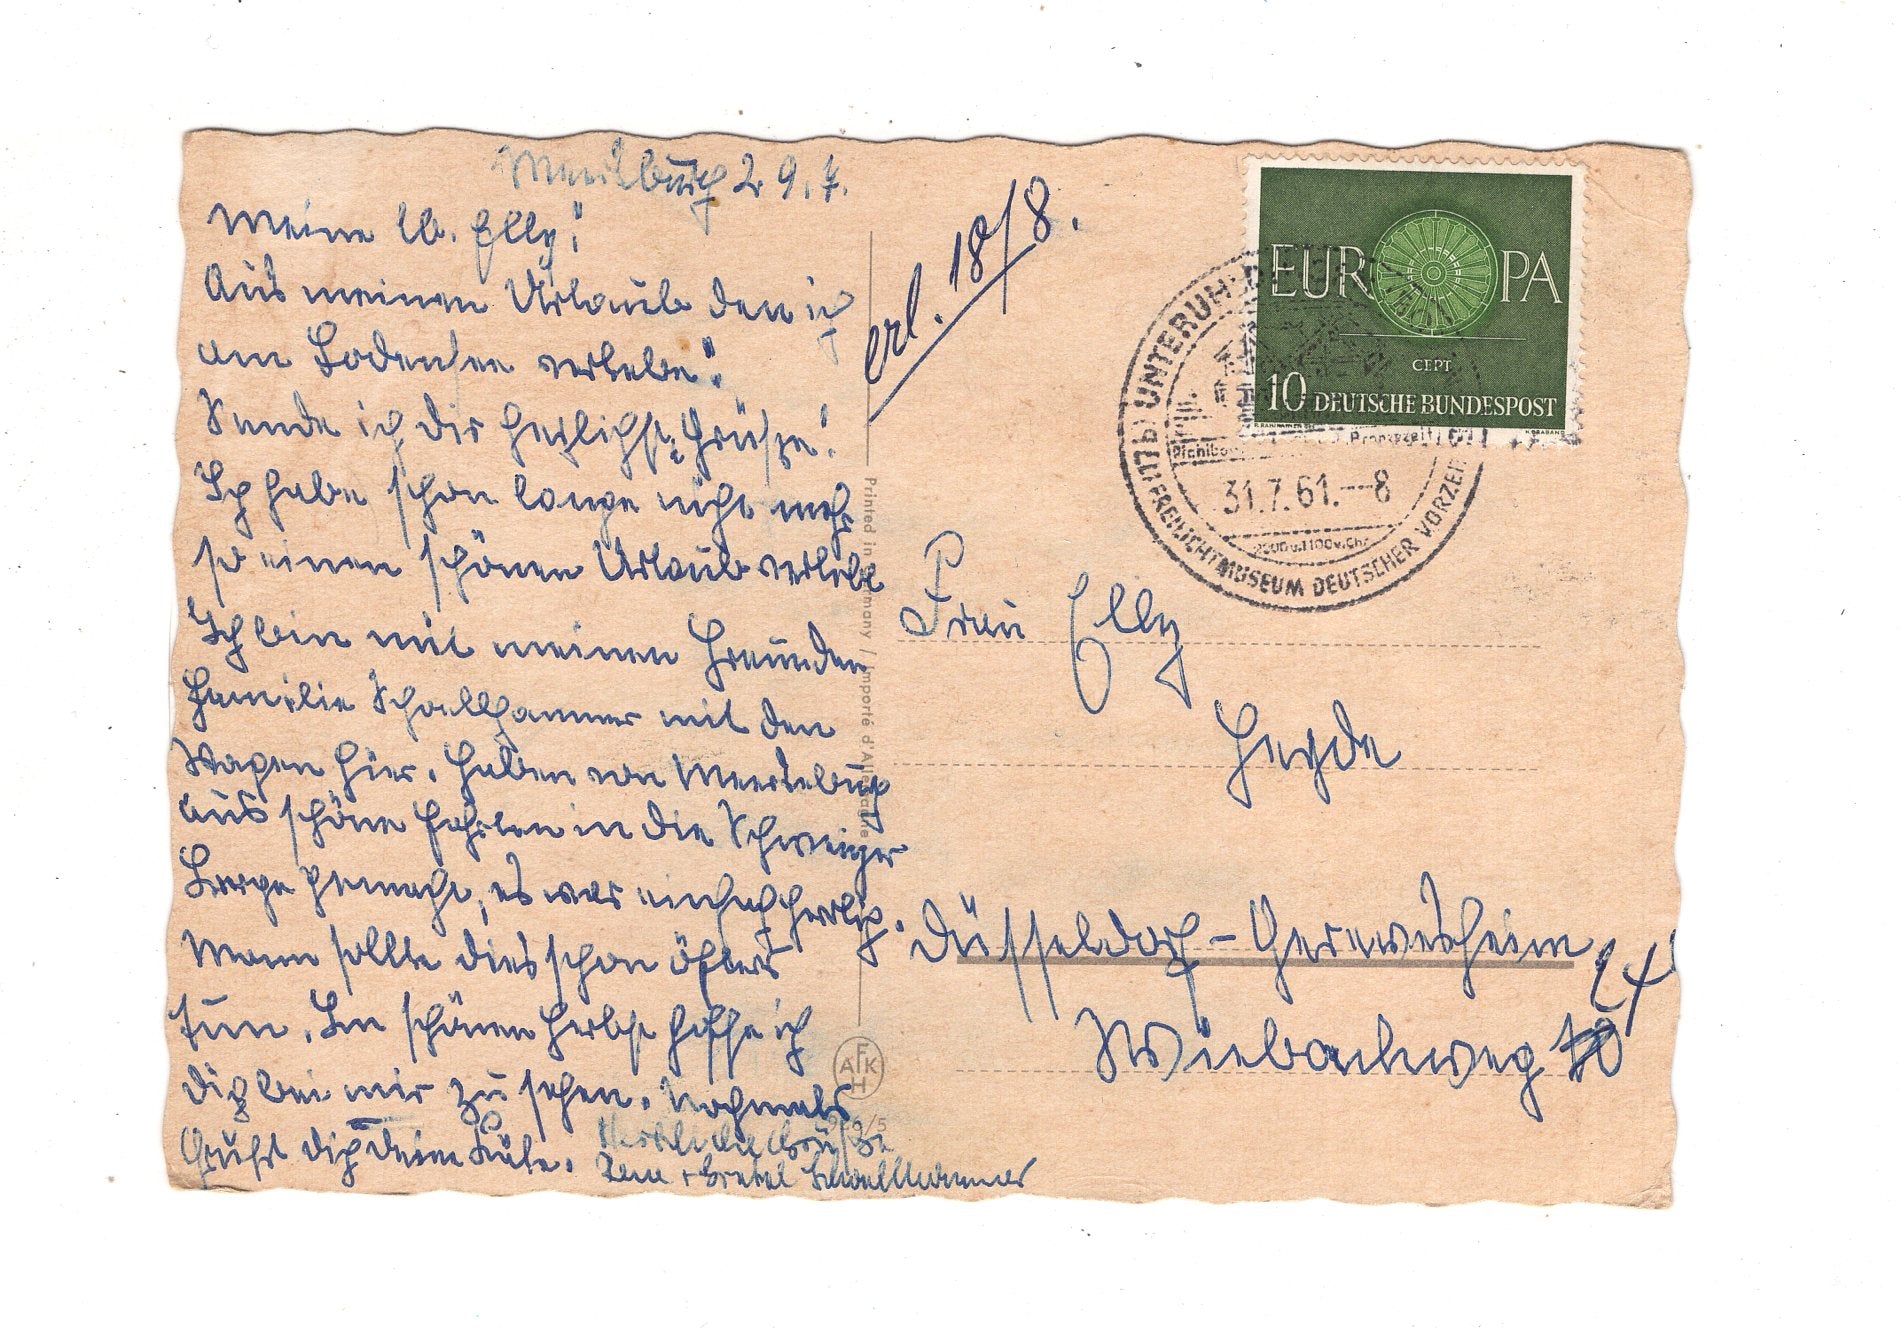 Meersburg 29.7.
Meine lb. Elly!
Aus meinen Urlaub den ich
am Bodensee verlebe!
Sende ich dir herzlichste Grüsse!
Ich habe schon lange nicht mehr
so einen schönen Urlaub verlebt
Ich bin mit meinen Freunden
Familie Schallhammer mit den
Wagen hier. Haben von Meersburg
aus schöne Fahrten in die Schweizer
Berge gemacht, es war einfach herrlich.
Mann sollte dies schon öfters
tun. Im schönen Herbst hoffe ich
dich bei mir zu sehen. Nochmals
Grüsst dich deine Käte.
Herzliche Grüsse
+ Gretel Schallhammer
erl. 18/8.
EUROPA
CEPT
10 DEUTSCHE BUNDESPOST
(17b) UNTERUHLDINGEN
31.7.61.--8
FREILICHTMUSEUM DEUTSCHER VORZEIT
Printed in Germany / Importé d'Allemagne
AFKH
Frau Elly
Heyde
Düsseldorf-Gerresheim
Wiebachweg 10
24